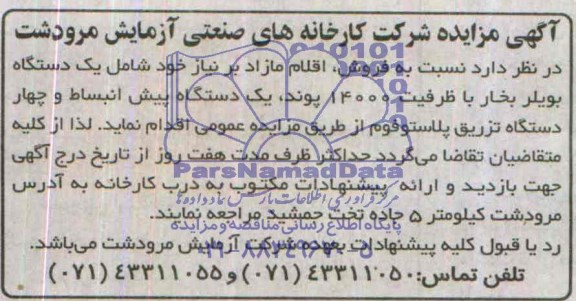 آگهی مزایده شرکت کارخانه های صنعتی آزمایش مرودشت
در نظر دارد نسبت به فروش، اقلام مازاد بر نیاز خود شامل یک دستگاه
بویلر بخار با ظرفیت ۱۴۰۰۰ پوند، یک دستگاه پیش انبساط و چهار
دستگاه تزریق پلاستوفوم از طریق مزایده عمومی اقدام نماید. لذا از کلیه
متقاضیان تقاضا می‌گردد حداکثر ظرف مدت هفت روز از تاریخ درج آگهی
جهت بازدید و ارائه پیشنهادات مکتوب به درب کارخانه به آدرس
مرودشت کیلومتر ۵ جاده تخت جمشید مراجعه نمایند.
رد یا قبول کلیه پیشنهادات بعهده شرکت آزمایش مرودشت می‌باشد.
تلفن تماس: ۴۳۳۱۱۰۵۰ (۰۷۱) و ۴۳۳۱۱۰۵۵ (۰۷۱)
ParsNamadData
پایگاه اطلاع رسانی مناقصه و مزایده